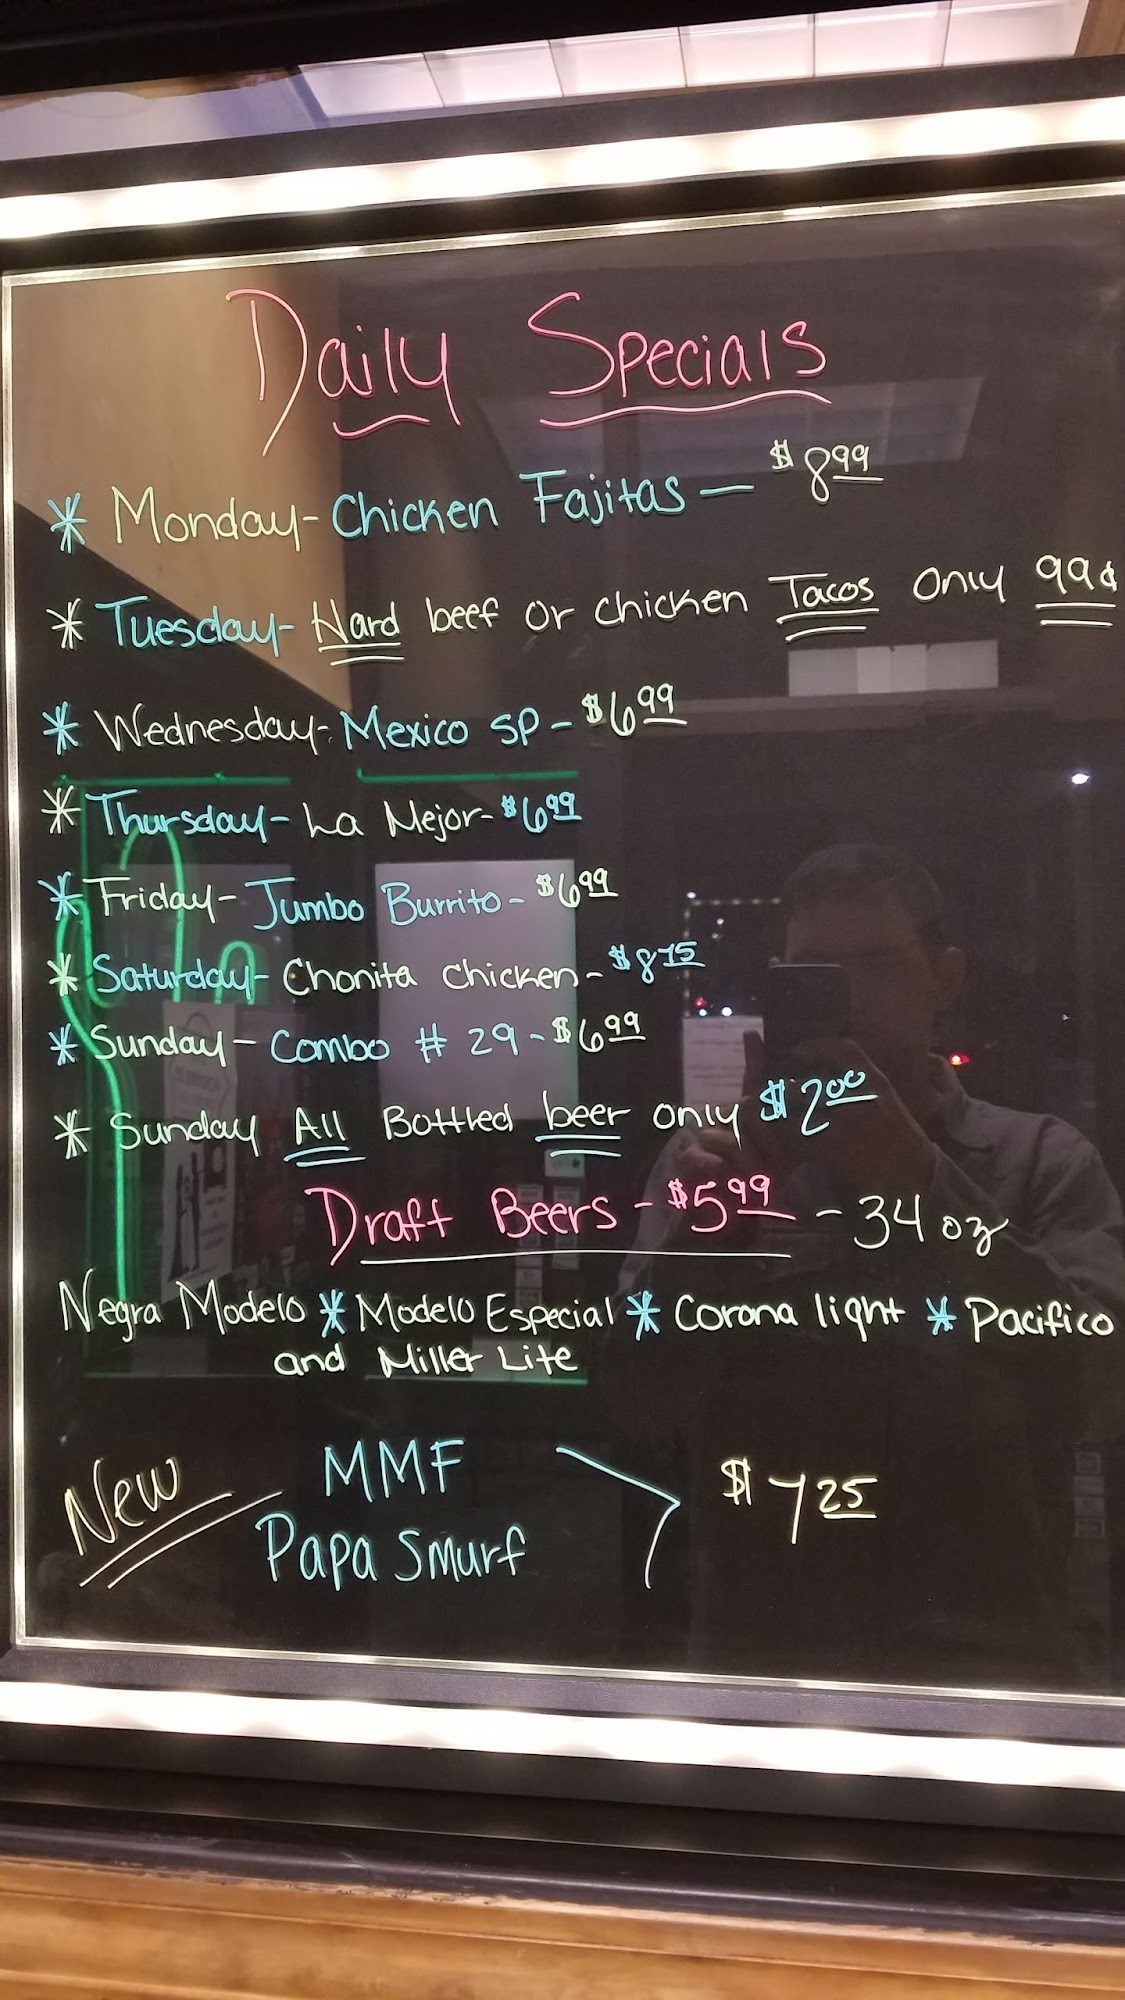 Daily Specials
* Monday - Chicken Fajitas - $8.99
* Tuesday - Hard beef or chicken Tacos only 99¢
* Wednesday - Mexico SP - $6.99
* Thursday - La Mejor - $6.99
* Friday - Jumbo Burrito - $6.99
* Saturday - Chonita Chicken - $8.75
* Sunday - Combo # 29 - $6.99
* Sunday All Bottled beer only $2.00
Draft Beers - $5.99 - 34 oz
Negra Modelo * Modelo Especial * Corona light * Pacifico
and Miller Lite
New MMF $7.25
Papa Smurf